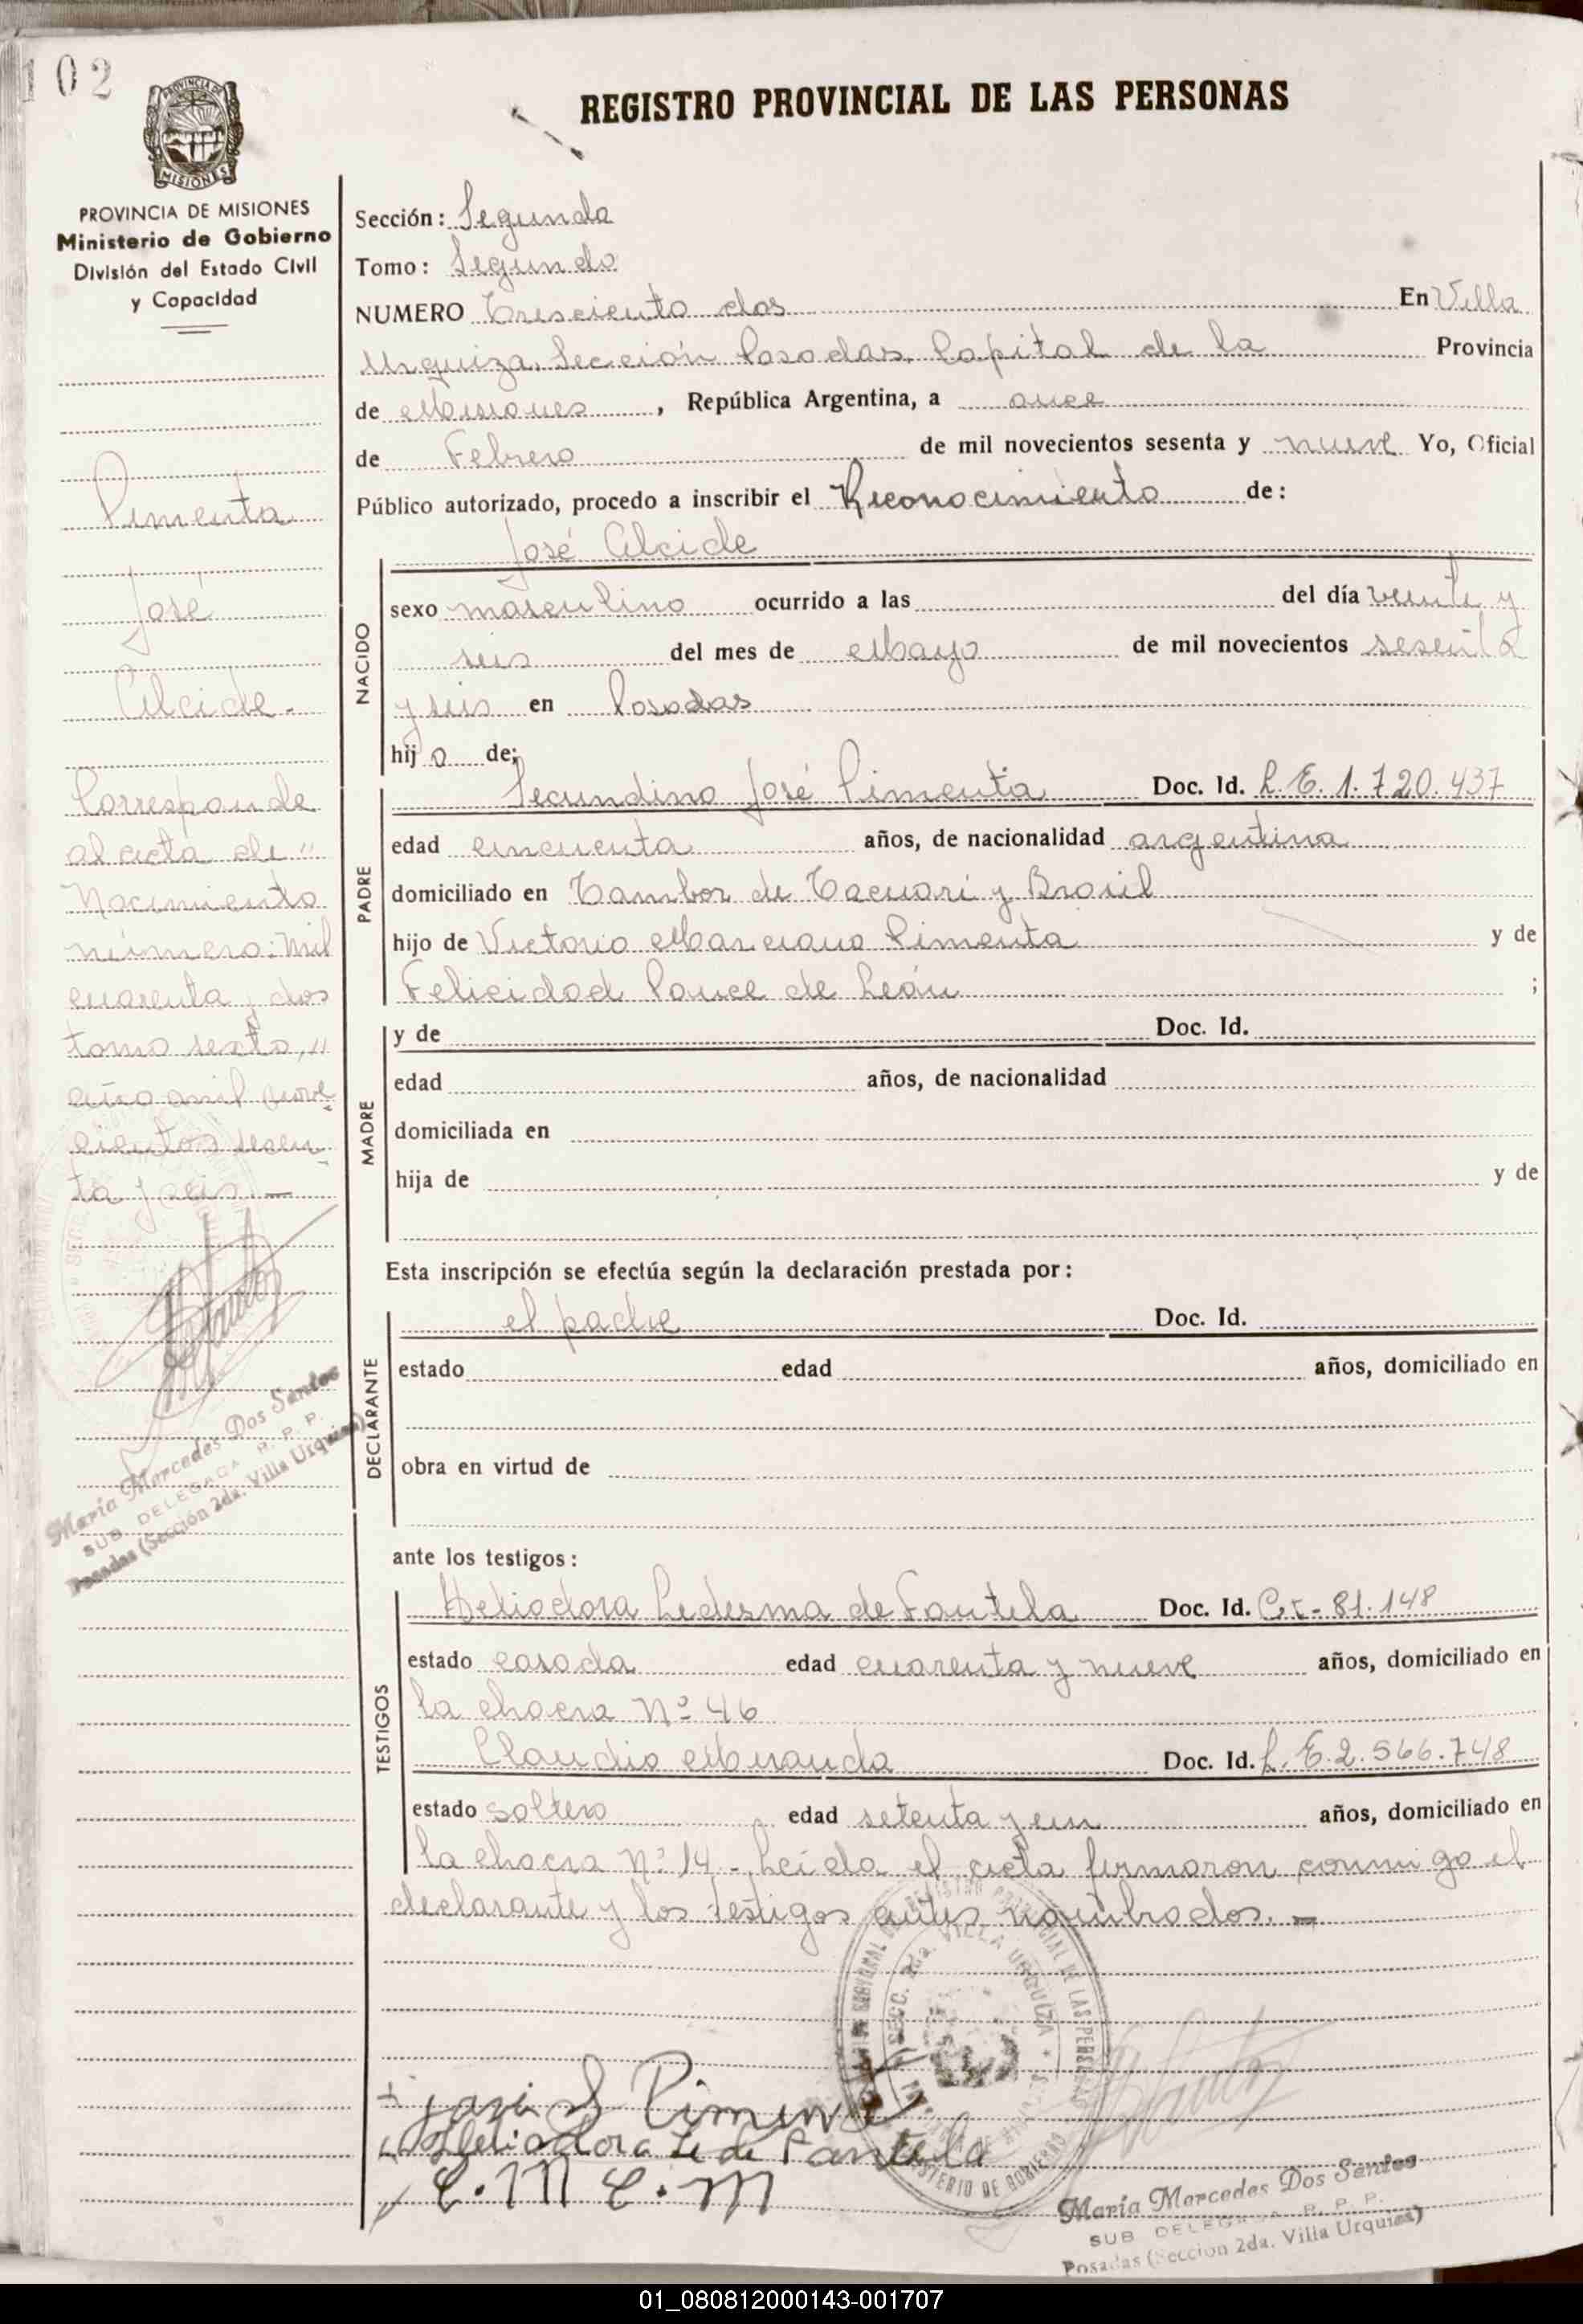 102
REGISTRO PROVINCIAL DE LAS PERSONAS
PROVINCIA DE MISIONES
MISIONES
PROVINCIA DE MISIONES
Ministerio de Gobierno
División del Estado Civil
y Capacidad
Pimenta
José
Alcide.-
Corresponde
al acta de "
Nacimiento
número: mil
cuarenta y dos
tomo sexto, "
año mil nove
cientos sesen
ta y seis. —
María Mercedes Dos Santos
SUB DELEGADA R. P. P.
Posadas (Sección 2da. Villa Urquiza)
Sección: Segunda
Tomo: Segundo
NUMERO Tresciento dos En Villa
Urquiza, Sección Posadas, Capital de la Provincia
de Misiones, República Argentina, a once
de Febrero de mil novecientos sesenta y nueve Yo, Oficial
Público autorizado, procedo a inscribir el Reconocimiento de:
José Alcide
NACIDO
sexo masculino ocurrido a las del día veinte y
seis del mes de Mayo de mil novecientos sesenta
y seis en Posadas
hijo de;
PADRE
Secundino José Pimenta Doc. Id. L.E. 1.720.437
edad cincuenta años, de nacionalidad argentina
domiciliado en Tambor de Tacuarí y Brasil
hijo de Victorio Marciano Pimenta y de
Felicidad Ponce de León ;
MADRE
y de Doc. Id.
edad años, de nacionalidad
domiciliada en
hija de y de
Esta inscripción se efectúa según la declaración prestada por:
DECLARANTE
el padre Doc. Id.
estado edad años, domiciliado en
obra en virtud de
ante los testigos:
TESTIGOS
Heliodora Ledesma de Fantela Doc. Id. C.I- 81.148
estado casada edad cuarenta y nueve años, domiciliado en
la chacra Nº 46
Claudio Miranda Doc. Id. L.E. 2.566.748
estado soltero edad setenta y un años, domiciliado en
la chacra Nº 14 - Leída el acta firmaron conmigo el
declarante y los testigos antes nombrados. —
SECC. 2da. VILLA URQUIZA
MINISTERIO DE GOBIERNO
Heliodora Le de Fantela
C. M C. M
María Mercedes Dos Santos
SUB DELEGADA R. P. P.
Posadas (Seccion 2da. Villa Urquiza)
01_080812000143-001707